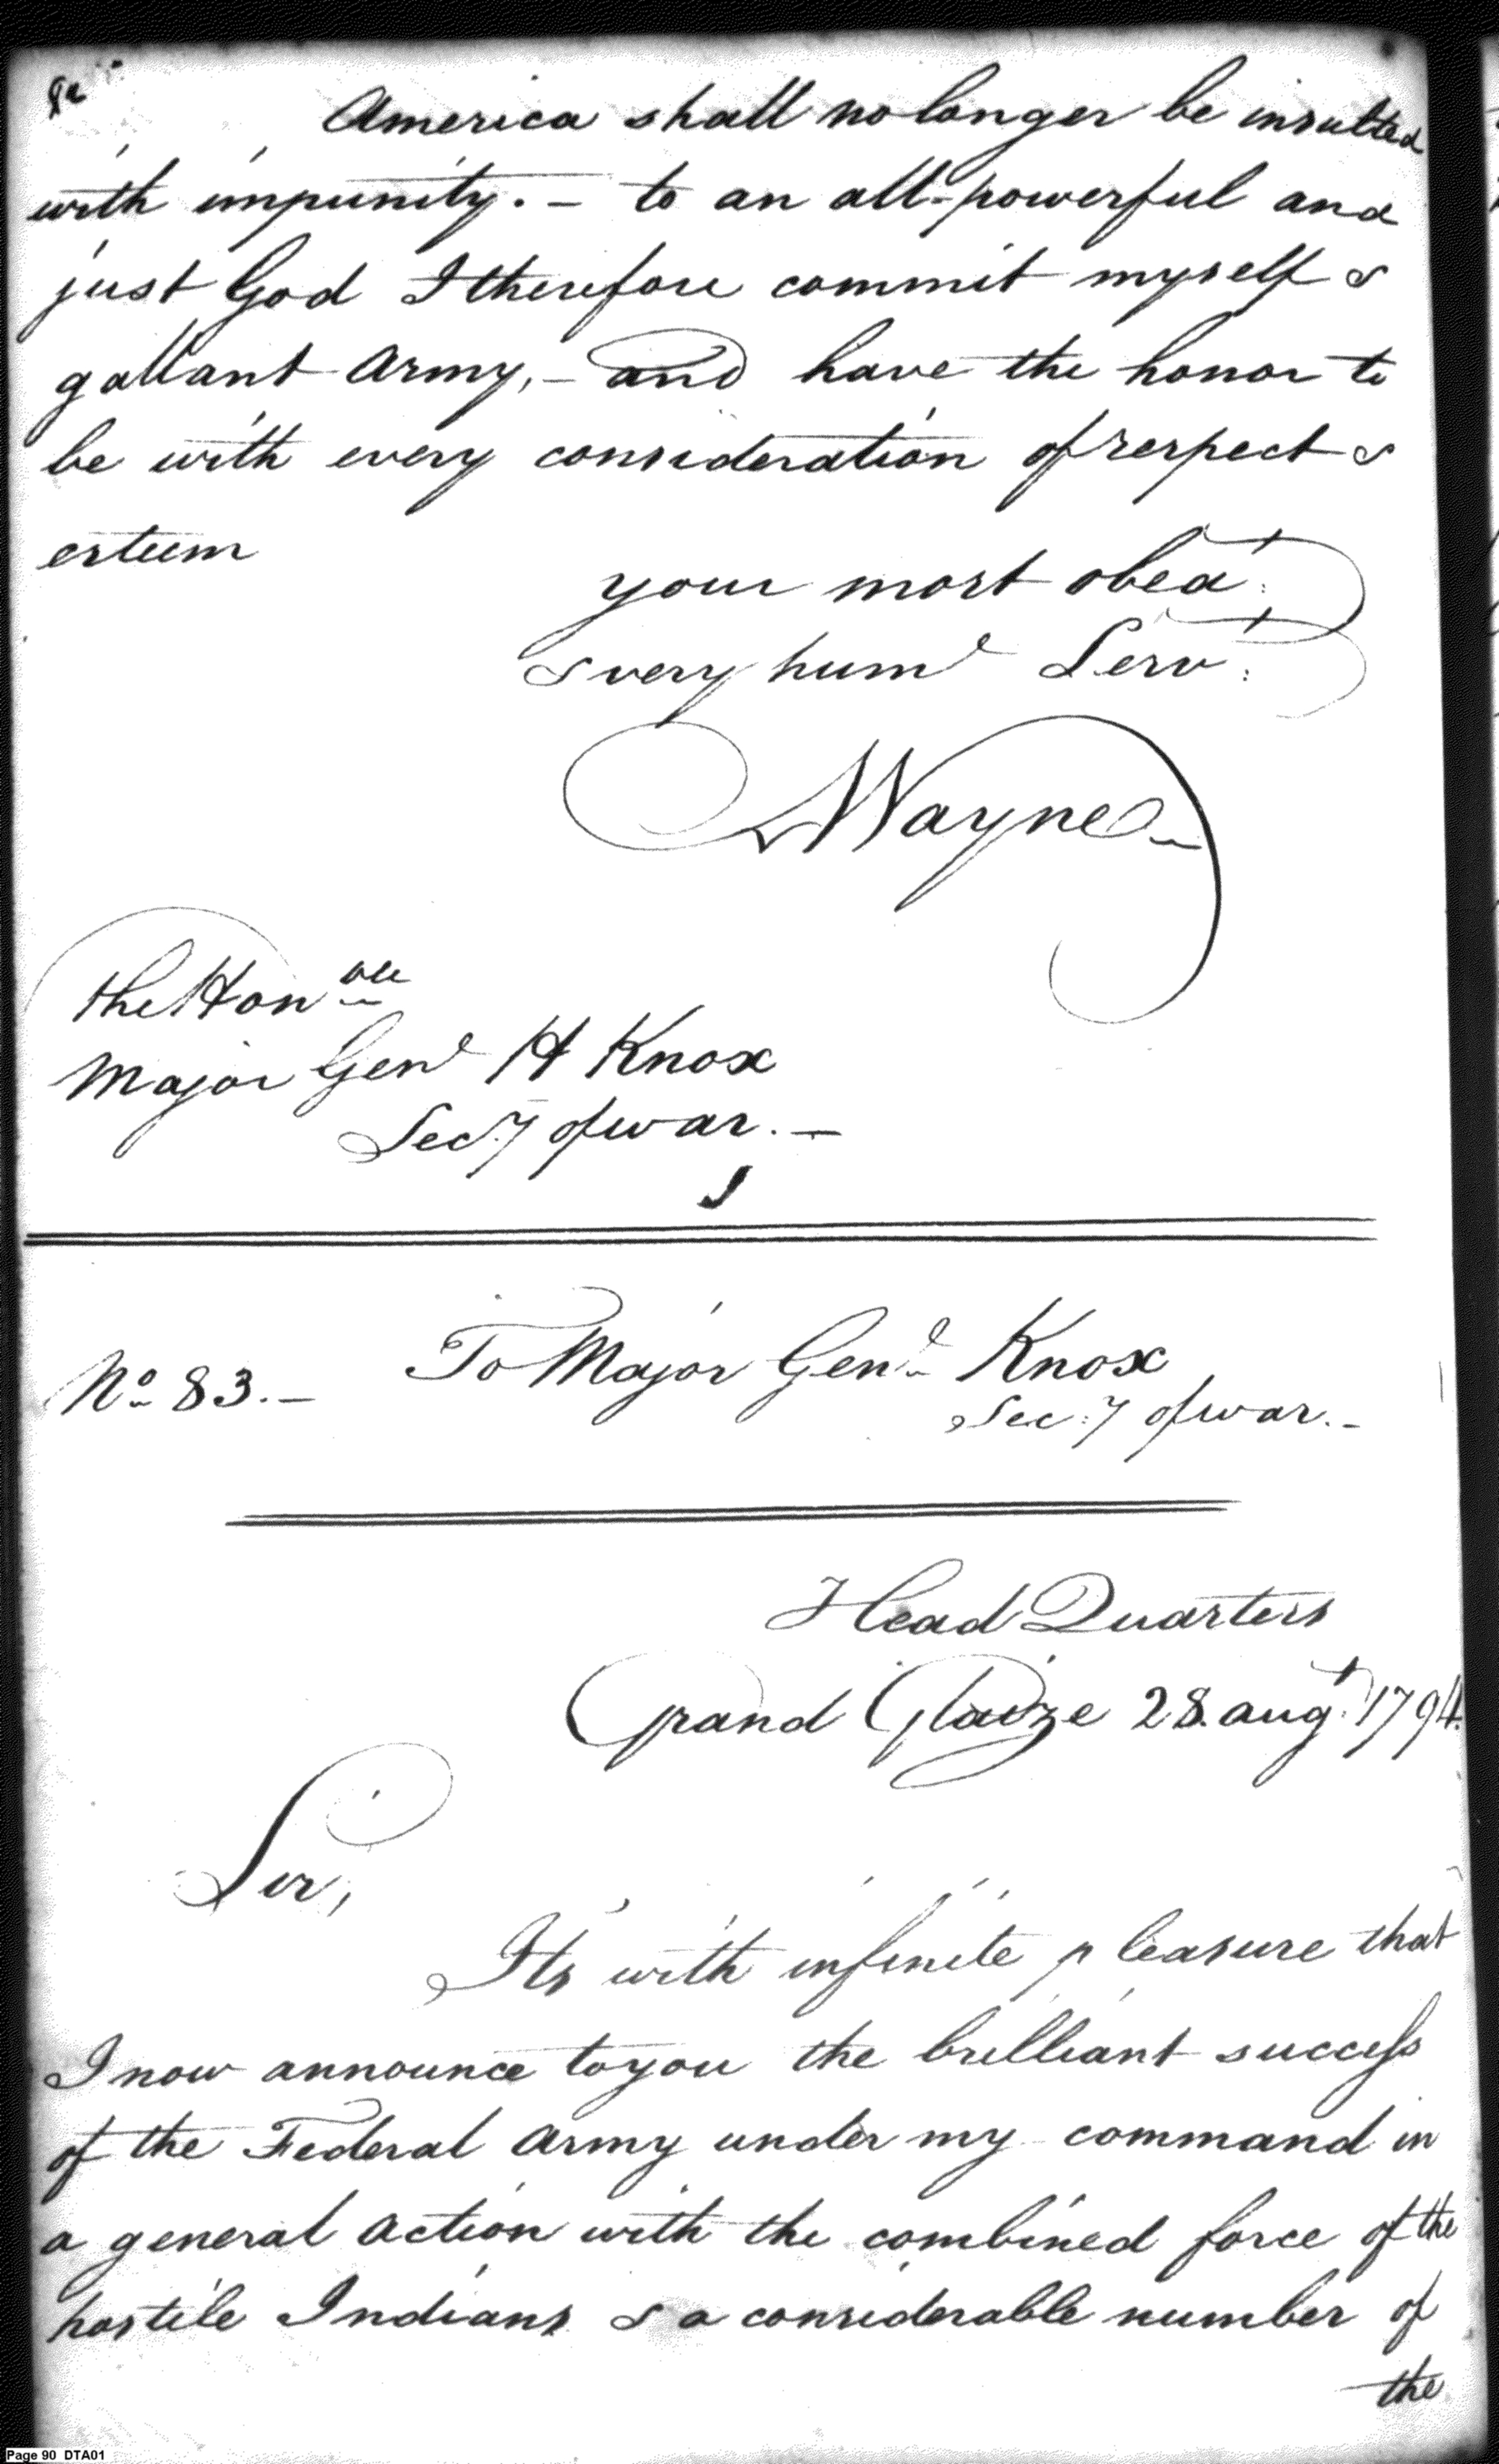 America shall no longer be insulted
with impunity. – to an all-powerful and
just God I therefore commit myself &
gallant army, – and have the honor to
be with every consideration of respect &
esteem
your most obed:t
& very huml Serv:t
Wayne
the Honble
Major Genl H Knox
Sec:y of war. –
No 83. –
To Major Genl Knox
Sec:y of war. –
Head Quarters
Grand Glaize 28. augt: 1794.
Sir,
Its with infinite pleasure that
I now announce to you the brilliant success
of the Federal army under my command in
a general action with the combined force of the
hostile Indians & a considerable number of
the
Page 90 DTA01